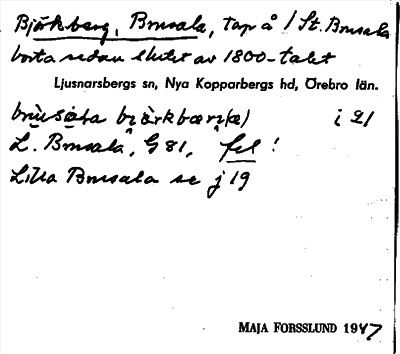 Björkberg, Brusala, Torp å / St. Brusala
borta sedan slutet av 1800-talet
Ljusnarsbergs sn, Nya Kopparbergs hd, Örebro län.
brùsàla bjàrkbærj(e) i 21
L. Brusala, G 81, fel!
Lilla Brusala se j 19
MAJA FORSSLUND 1947